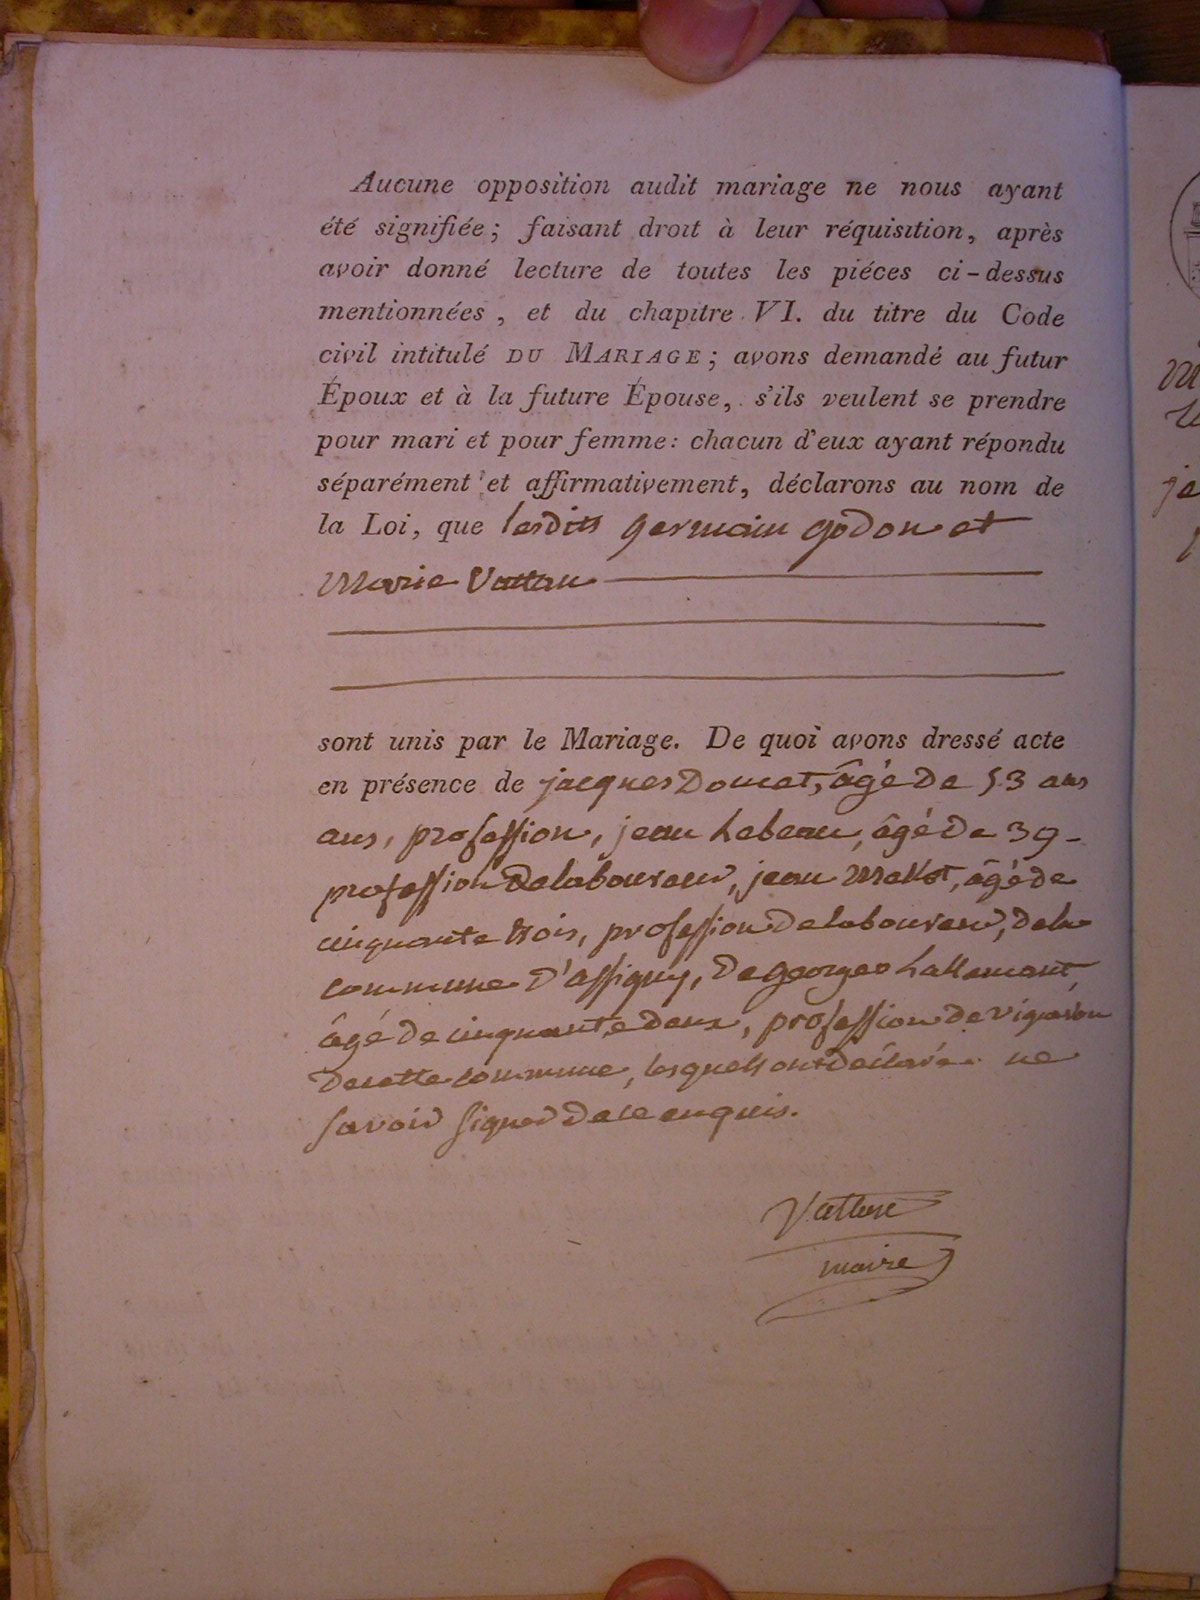 Aucune opposition audit mariage ne nous ayant
été signifiée; faisant droit à leur réquisition, après
avoir donné lecture de toutes les piéces ci-dessus
mentionnées, et du chapitre VI. du titre du Code
civil intitulé DU MARIAGE; avons demandé au futur
Époux et à la future Épouse, s'ils veulent se prendre
pour mari et pour femme: chacun d'eux ayant répondu
séparément et affirmativement, déclarons au nom de
la Loi, que lesdits germain godon et
Marie Vattan
sont unis par le Mariage. De quoi avons dressé acte
en présence de jacques Doucet, âgé De 53 ans
ans, profession, jean Lebeau, âgé De 39
profession De laboureur, jean âgé de
cinquante trois, profession De laboureur, de la
commune D'assigny, De georges Lallemant,
âgé De cinquante deux, profession De vigneron
De cette commune, lesquels ont déclaré ne
savoir signer De ce enquis.
maire